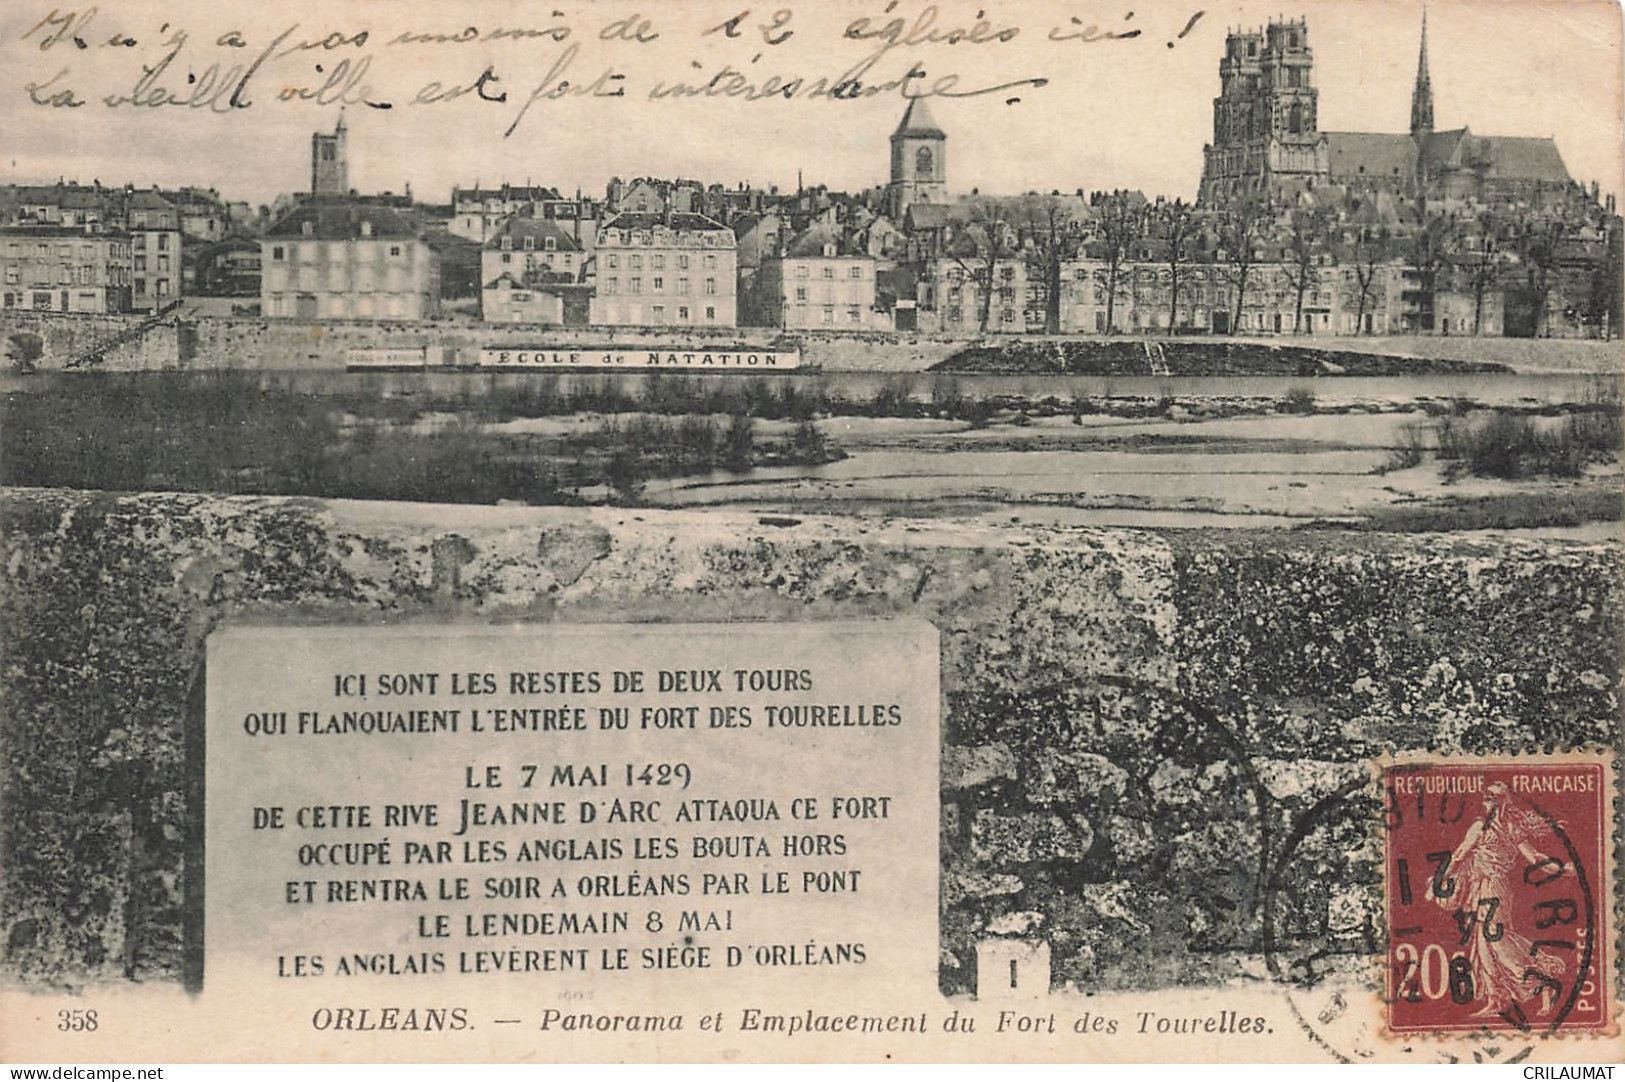 Il n'y a pas moins de 12 églises ici !
La vieille ville est fort intéressante.
ÉCOLE de NATATION
ICI SONT LES RESTES DE DEUX TOURS
QUI FLANQUAIENT L'ENTRÉE DU FORT DES TOURELLES
LE 7 MAI 1429
DE CETTE RIVE JEANNE D'ARC ATTAQUA CE FORT
OCCUPÉ PAR LES ANGLAIS LES BOUTA HORS
ET RENTRA LE SOIR A ORLÉANS PAR LE PONT
LE LENDEMAIN 8 MAI
LES ANGLAIS LEVÈRENT LE SIÈGE D'ORLÉANS
1
RÉPUBLIQUE FRANÇAISE
20c
POSTES
ORLEANS
21
24
358 ORLEANS. — Panorama et Emplacement du Fort des Tourelles.
delcampe.net
CRILAUMAT